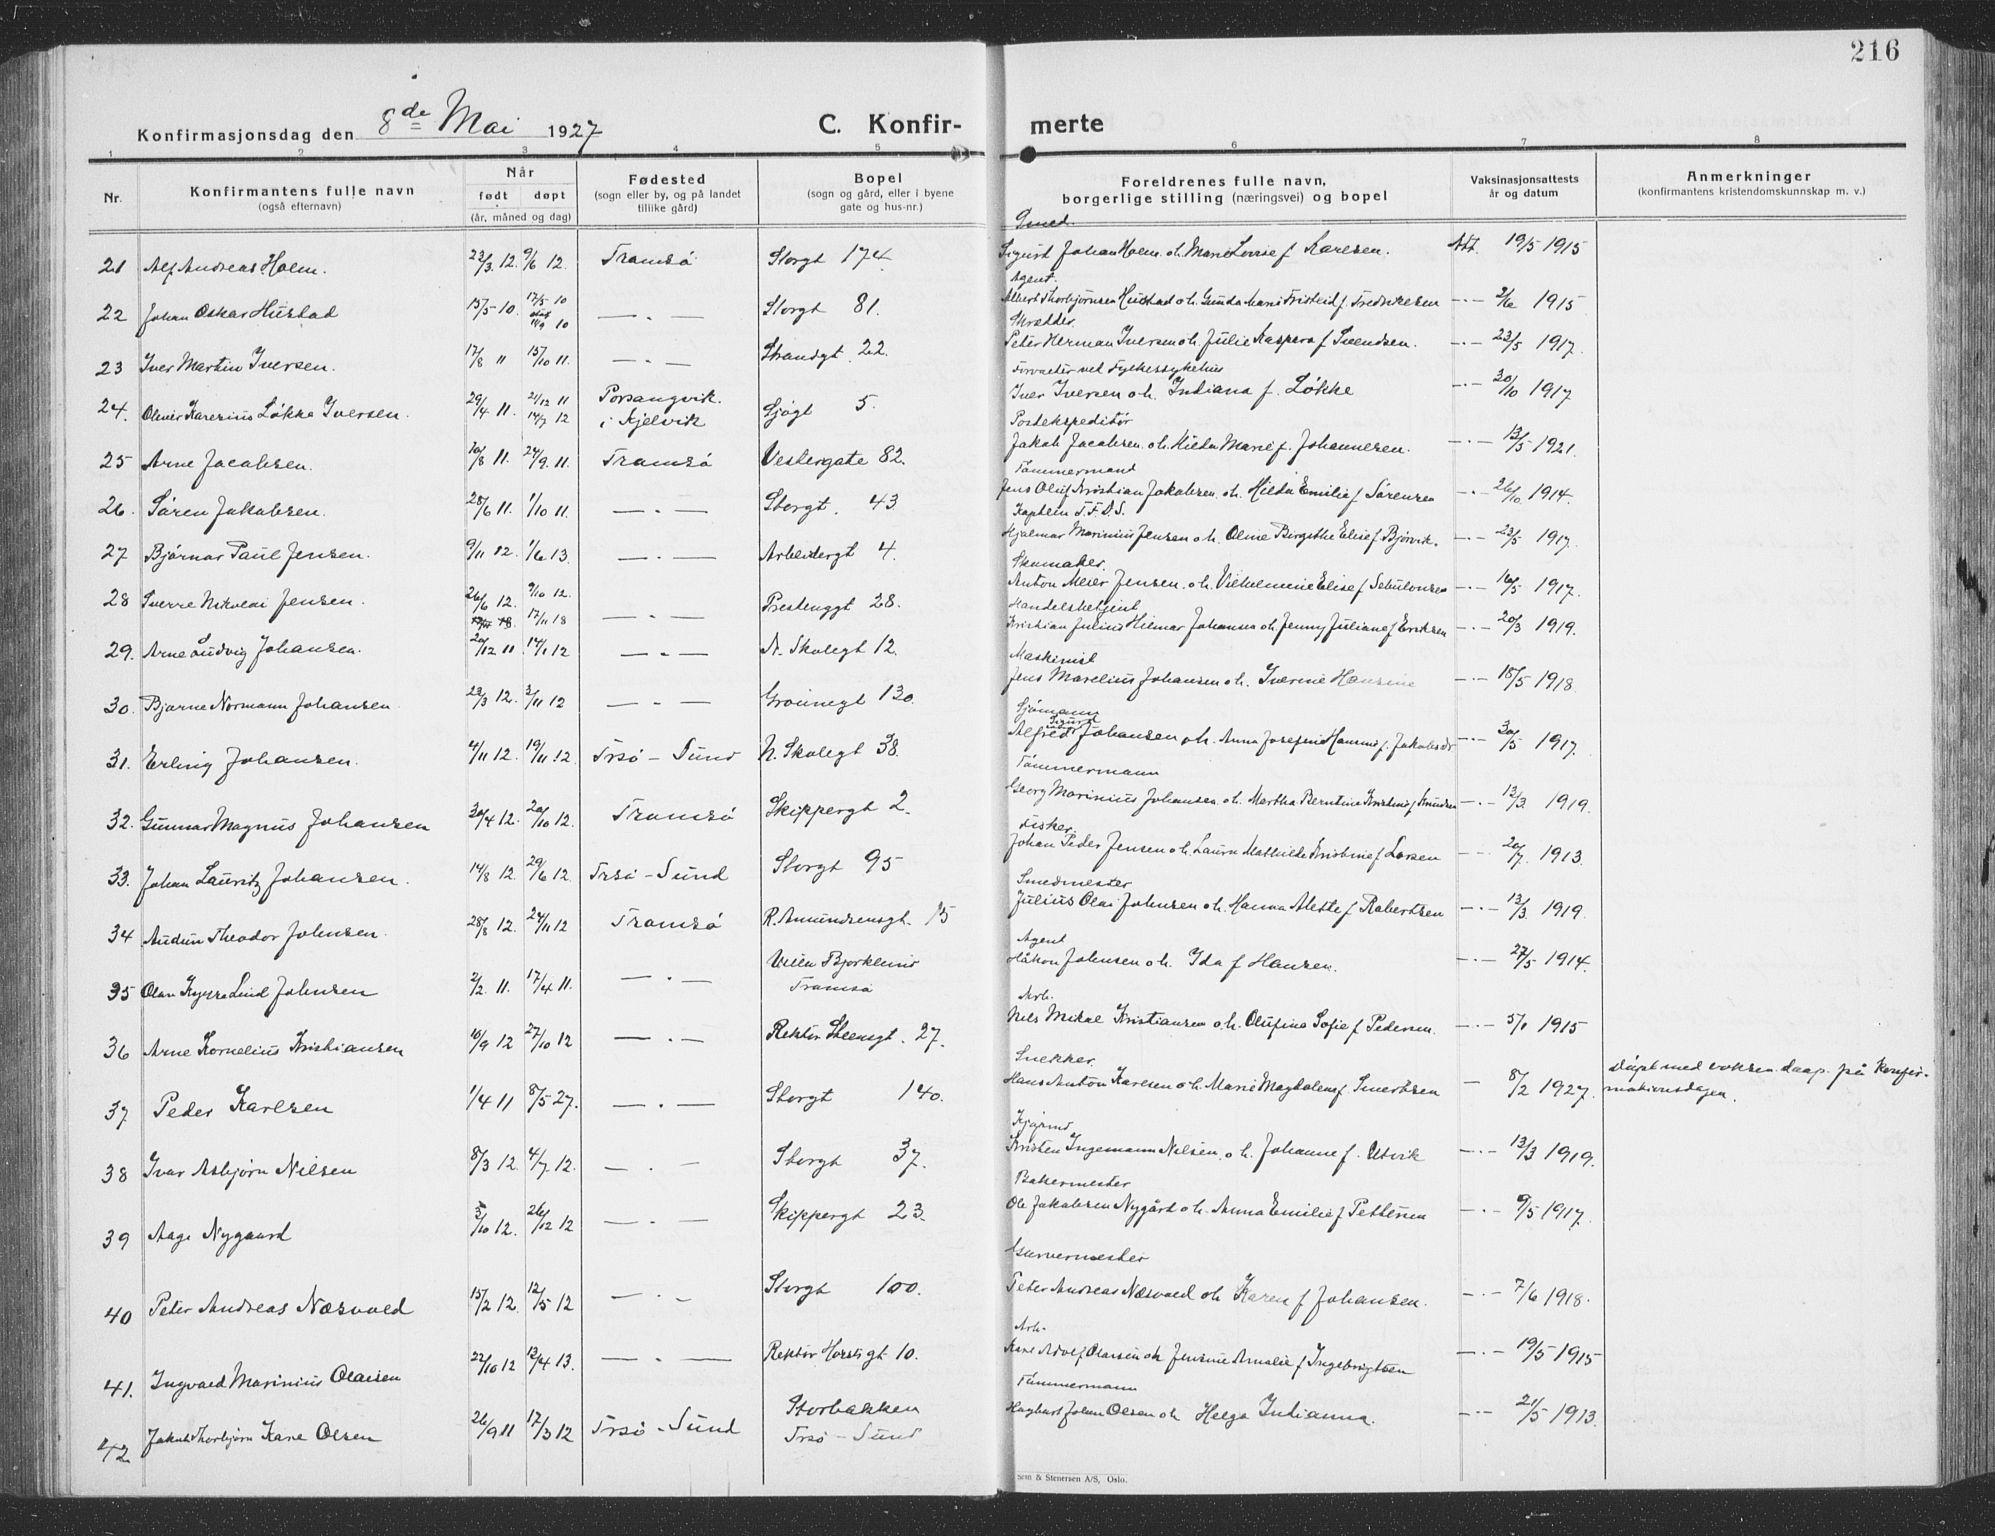 216
Konfirmasjonsdag den 8de Mai 1927 C. Konfir- merte
1 2 3 4 5 6 7 8
Nr. Konfirmantens fulle navn (også efternavn) Når født døpt (år, måned og dag) Fødested (sogn eller by, og på landet tillike gård) Bopel (sogn og gård, eller i byene gate og hus-nr.) Foreldrenes fulle navn, borgerlige stilling (næringsvei) og bopel Vaksinasjonsattests år og datum Anmerkninger (konfirmantens kristendomskunnskap m. v.)
Smed.
21 Alf Andreas Holm. 23/3 12. 9/6 12. Tromsø Storgt 174. Sigurd Johan Holm. o. h. Marie Lovise f Karlsen. Att. 19/5 1915
Agent.
22 Johan Oskar Hustad 15/5 10. 17/5 10 11/9 10 — . — Storgt 81. Albert Thorbjørnsen Hustad o h. Gunda Marie f. Fredriksen —·— 2/6 1915
Skrædder.
23 Iver Martin Iversen. 17/8 11 15/10 11. — . — Strandgt. 22. Peter Herman Iversen o h. Julie Kaspara f Svendsen. —·— 23/5 1917.
Forvalter ved Fylkessykehus
24. Oliver Karenius Løkke Iversen. 29/4 11. 21/12 11 14/7 12 Porsangvik. i Kjelvik Sjøgt 5. Iver Iversen o h. Indiana f. Løkke —·— 30/10 1917
Postekspeditør
25 Arne Jacobsen. 30/8 11. 24/9 11. Tromsø Vestergate 82. Jakob Jacobsen. o h. Hilda Marie f. Johannesen. —·— 13/5 1921.
Tømmermand
26. Søren Jakobsen. 28/6 11. 1/10 11. — . — Storgt. 43 Jens Oluf Kristian Jakobsen. o h. Hilda Emilie f Sørensen —·— 26/10 1914.
Kaptein T.F.D.S.
27 Bjørnar Paul Jensen. 9/11 12. 1/6 13. — . — Arbeidergt 4. Hjalmar Marinius Jensen o h. Oline Birgithe Elise f Bjørvik. —·— 23/5 1917.
Skomaker.
28 Sverre Nikolai Jensen. 26/6 12. 9/10 12. 17/11 18 — . — Prestenggt 28. Anton Meier Jensen. o h. Vilhelmine Elise f Sebulonsen —·— 16/5 1917.
Handelsbetjent
29. Arne Ludvig Johansen. 20/12 11 14/1 12 — . — N. Skolegt 12. Kristian Julius Hilmar Johansen o h. Jenny Juliane f Eriksen —·— 20/3 1919.
Maskinist
30. Bjarne Normann Johansen 23/3 12. 3/11 12 — . — Grønnegt 130. Jens Marelius Johansen o h. Iverine Hansine —·— 18/5 1918.
Sjømann
31. Erling Johansen. 4/11 12. 19/11 12. Trsø - Sund N. Skolegt 38 Alfred Sigurd Johansen o h. Anna Josefine Hansine f. Jakobsdr —·— 30/5 1917.
Tømmermann
32. Gunnar Magnus Johansen 30/4 12. 20/10 12. Tromsø Skippergt 2. Georg Marinius Johansen. o h. Martha Berntine Kristine f Knudsen —·— 13/3 1919.
Fisker.
33. Johan Lauritz Johansen. 14/8 12. 29/6 12. Trsø - Sund Storgt 95 Johan Peder Jensen o h. Laura Mathilde Kristine f Larsen —·— 20/7. 1913.
Smedmester
34 Audun Theodor Johnsen. 28/8 12. 24/11 12 Tromsø R. Amundsensgt. 15 Julius Olai Johnsen o h. Hanna Alette f Robertsen —·— 13/3 1919.
Agent
35 Olav Lind Johnsen 2/2. 11. 17/4 11. — . — Tromsø Håkon Johnsen o h. Ida f Hansen. —·— 27/5 1914.
Arb.
36 Arne Kornelius Kristiansen 10/9 12 27/10 12 — . — Rektor Steensgt. 27. Nils Mikal Kristiansen o h. Olufine Sofie f Pedersen. —·— 5/1 1915
Snekker.
37 Peder Karlsen 1/4 11 8/5 27. — . — Storgt 140. Hans Anton Karlsen o h. Marie Magdalene f. Sivertsen — 8/2 1927. døpt med voksen daap. på konfir- mationsdagen.
38 Ivar Asbjørn Nilsen 8/3 12. 4/7 12. — . — Storgt 37. Kristen Ingemann Nilsen. o h. Johanne f. Utvik —·— 13/3 1919.
Bakermester
39 Aage Nygaard 5/10 12. 26/12 12 — . — Skippergt 23. Ole Jakobsen Nygård o h. Anna Emilie f Pettersen —·— 9/5 1917.
Garvermester
40 Peter Andreas Næsvold 15/2 12. 12/5 12 — . — Storgt 100. Peter Andreas Næsvold o h Karen f Johansen. —·— 7/6 1918.
Arb.
41. Ingvald Marinius Olaisen 22/10 12 13/4 13. — . — Rektor Horstgt 10. Karl Adolf Olaisen o h Jensine Amalie f Ingebrigtsen —·— 19/5 1915
Tømmermann
42 Jakob Thorbjørn Kare Olsen 26/9 11 17/3 12 Trsø - Sund Storbakken Trsø - Sund Hagbart Johan Olsen o h Helga Indianna. —·— 21/5 1913.
Sem & Stenersen A/S, Oslo.